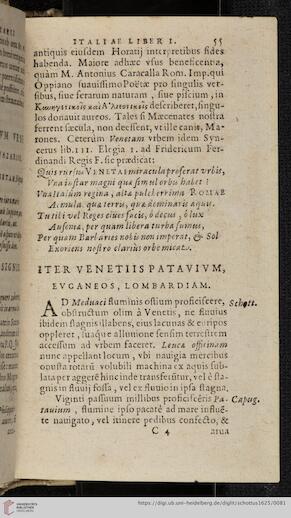 ITALIAE LIBER I. 55
antiquis eiusdem Horatij interpretibus fides
habenda. Maiore adhæc vsus beneficentia,
quàm M. Antonius Caracalla Rom. Imp. qui
Oppiano suauissimo Poëtæ pro singulis ver-
sibus, siue ferarum naturam, siue piscium, in
describeret, singu-
los donauit aureos. Tales si Mæcenates nostra
ferrent sæcula, non deessent, vt ille canit, Ma-
rones. Ceterùm Venetam vrbem idem Syn-
cerus lib. III. Elegia 1. ad Fridericum Fer-
dinandi Regis F. sic prædicat:
Quis rursus VENETAE miracula proferat vrbis,
Vna instar magni quæ simul orbis habet?
Vna Italûm regina, altæ pulcerrima ROMAE
Æmula. quæ terris, quæ dominaris aquis.
Tu tibi vel Reges ciues facis, ô decus, ô lux
Ausoniæ, per quam libera turba sumus,
Per quam Barbaries nobis non imperat, & Sol
Exoriens nostro clarius orbe micat.
ITER VENETIIS PATAVIVM,
EVGANEOS, LOMBARDIAM.
AD Meduaci fluminis ostium proficiscere, Schott.
obstructum olim à Venetis, ne fluuius
ibidem stagnis illabens, eius lacunas & euripos
oppleret, suaque alluuione sensim terrestrem
accessum ad vrbem faceret. Leucæ officinam
nunc appellant locum, vbi nauigia mercibus
onusta rotarũ volubili machina ex aquis sub-
lata per aggerẽ hinc inde transferũtur, vel è sta-
gnis in fluuij fossa, vel ex fluuio in ipsa stagna.
Viginti passuum millibus proficiscẽris Pa- Capug.
tauium, flumine ipso pacatè ad mare influẽ-
te nauigato, vel itinere pedibus confecto, &
C 4 arua
https://digi.ub.uni-heidelberg.de/diglit/schottus1625/0081